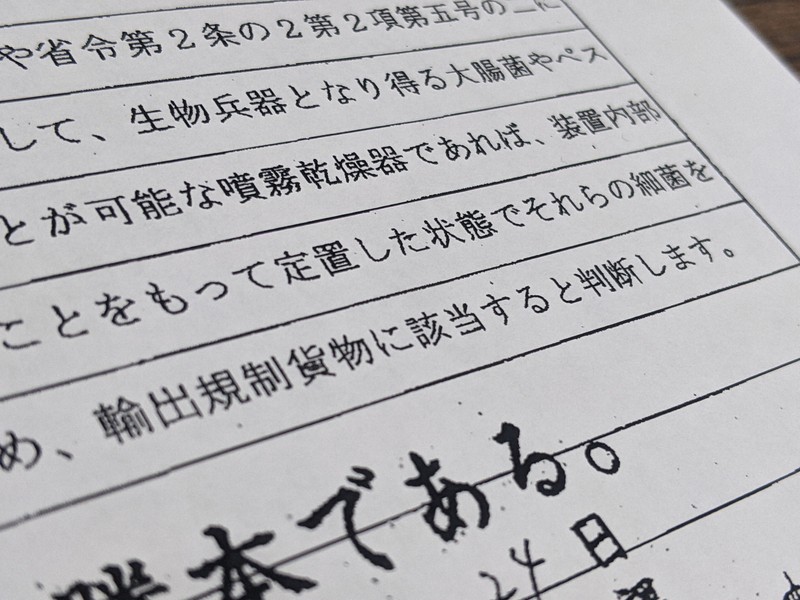 や省令第2条の2第2項第五号の二に
して、生物兵器となり得る大腸菌やペス
とが可能な噴霧乾燥器であれば、装置内部
ことをもって定置した状態でそれらの細菌を
め、輸出規制貨物に該当すると判断します。
謄本である。
24日